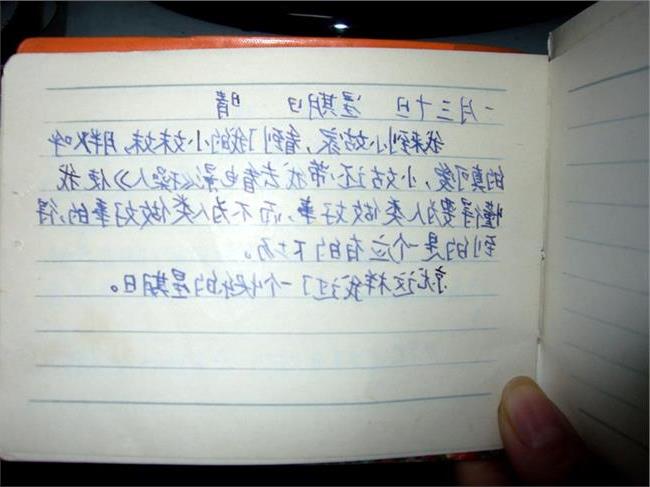 一月三十日 星期日 晴
我来到小姑家，看到了我的小妹妹，胖呼
的真可爱，小姑还带我去看电影《人》使我
懂得要为人类做好事，而不为人类做好事的，得
到的是一个应有的下场。
就这样我过了一个快乐的星期日。